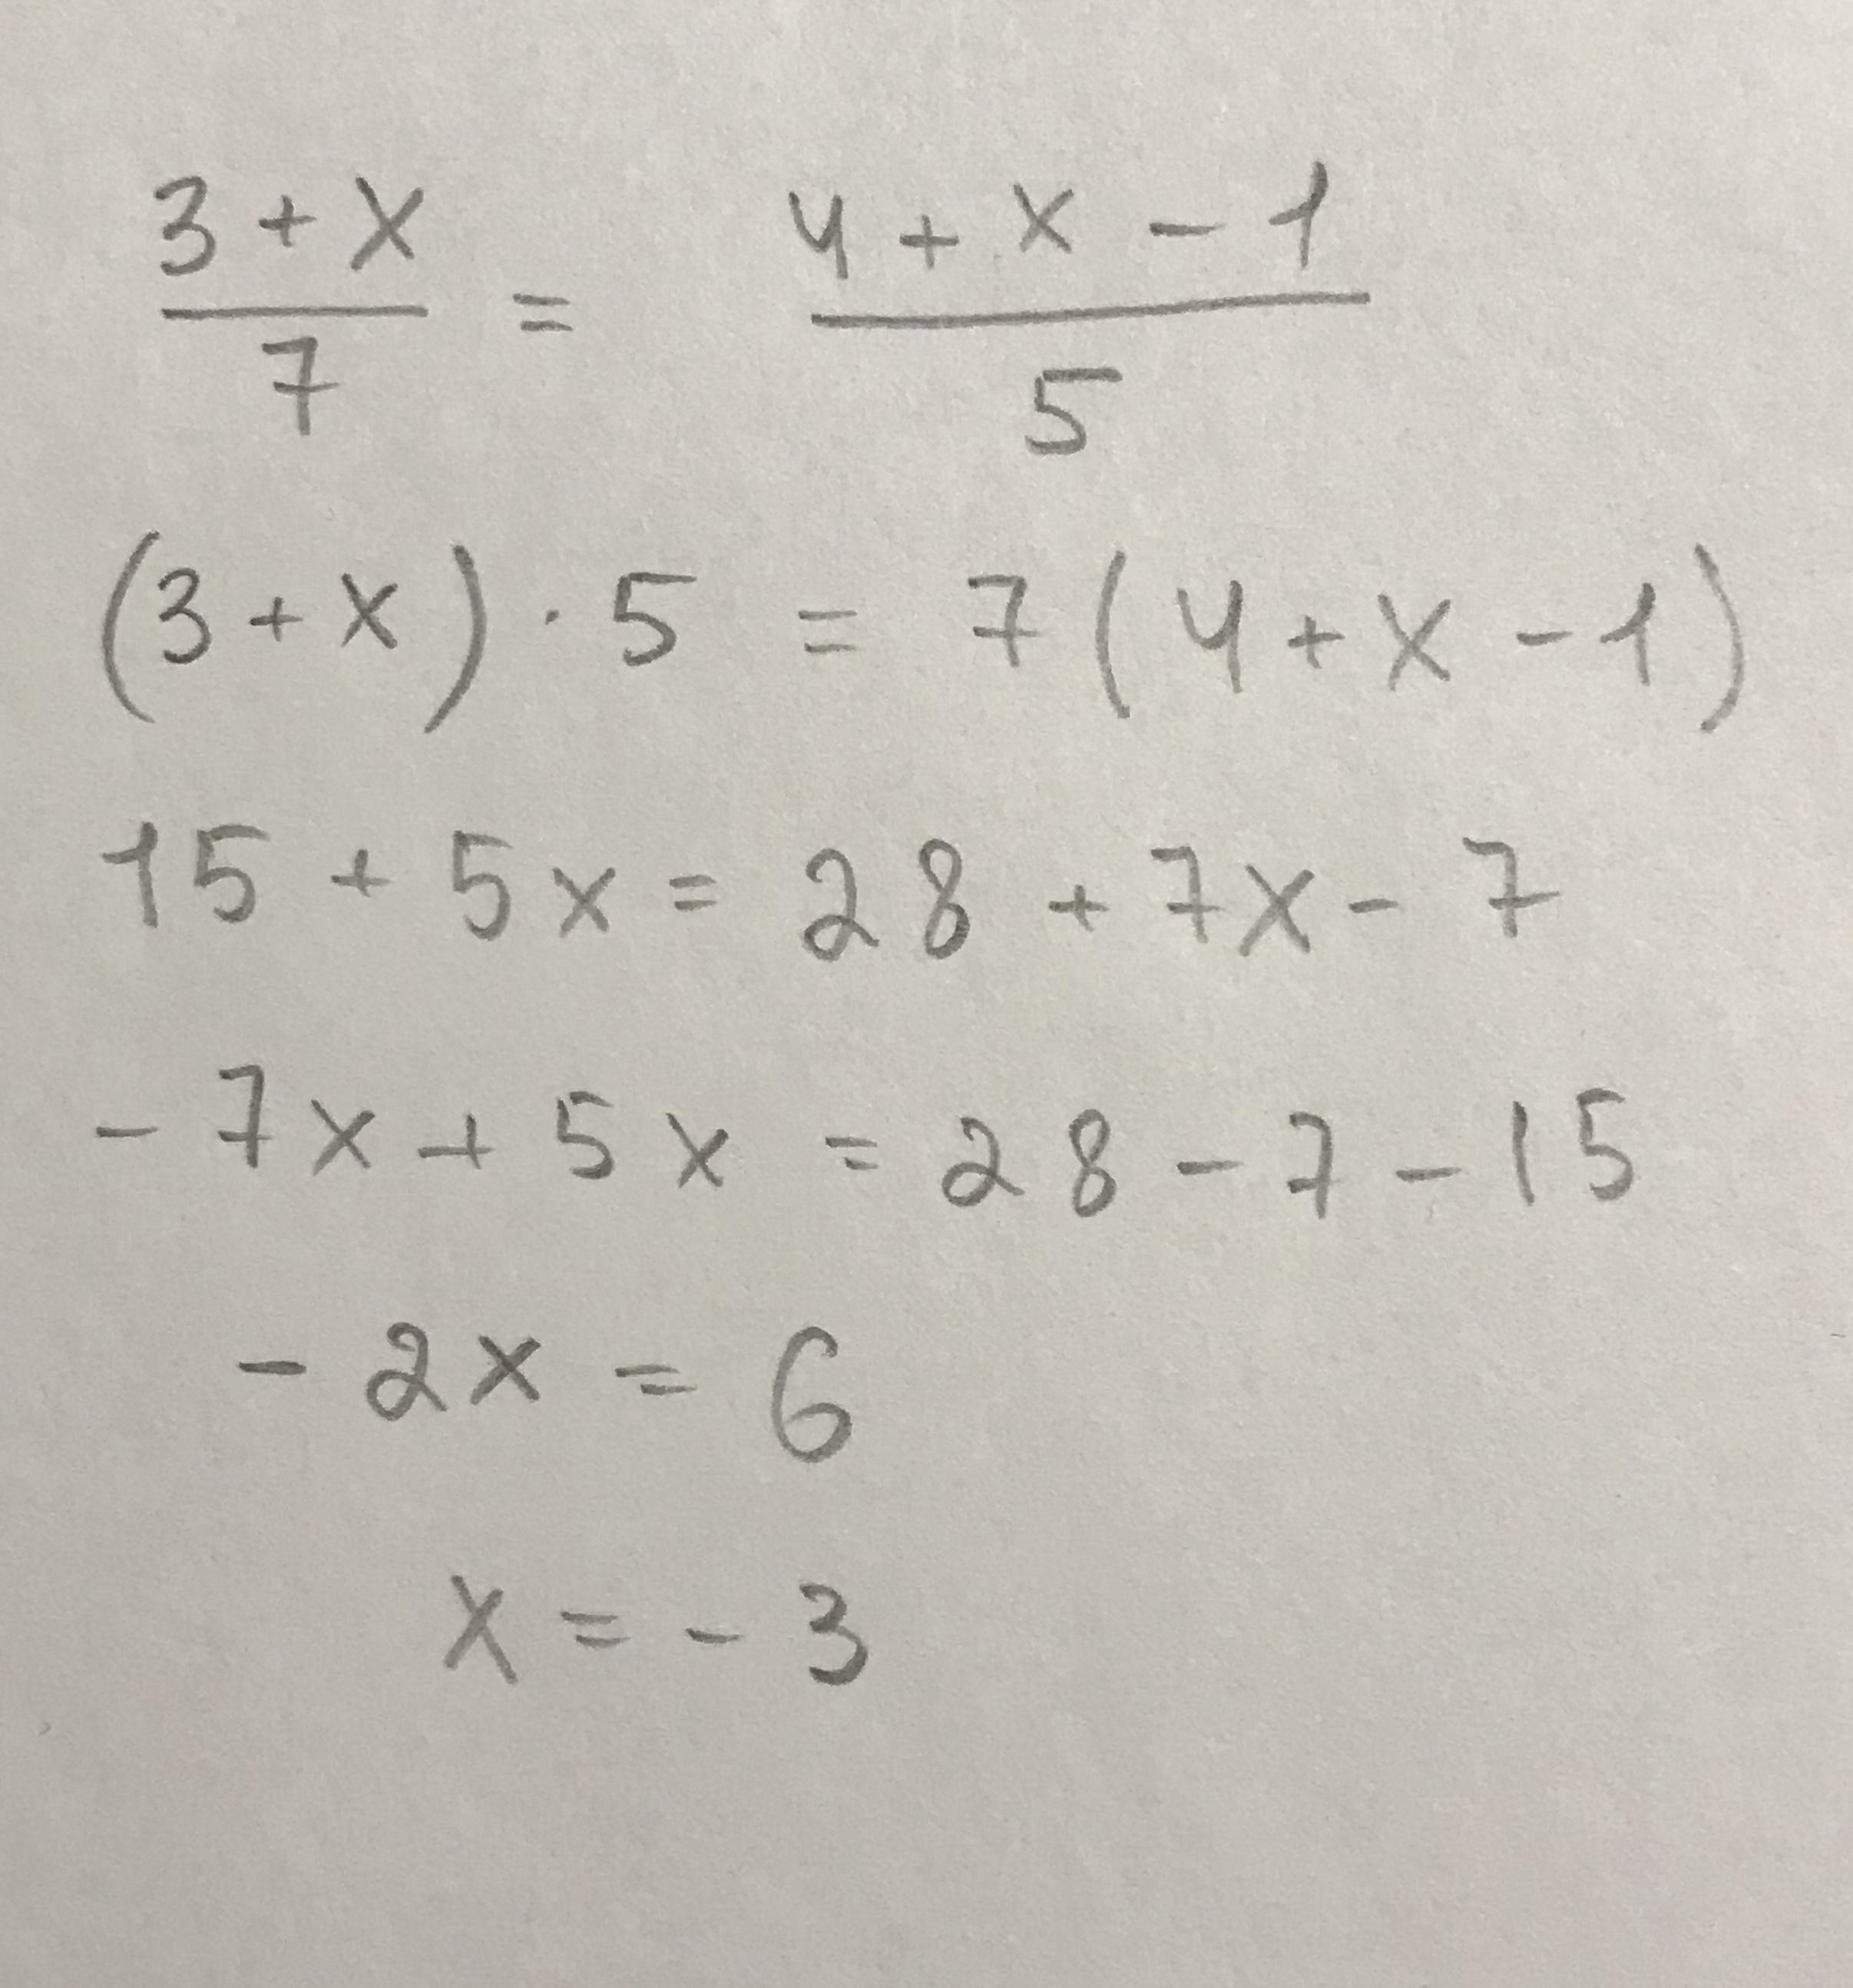 3 + x / 7 = 4 + x - 1 / 5
(3 + x) · 5 = 7 (4 + x - 1)
15 + 5x = 28 + 7x - 7
- 7x + 5x = 28 - 7 - 15
- 2x = 6
x = - 3